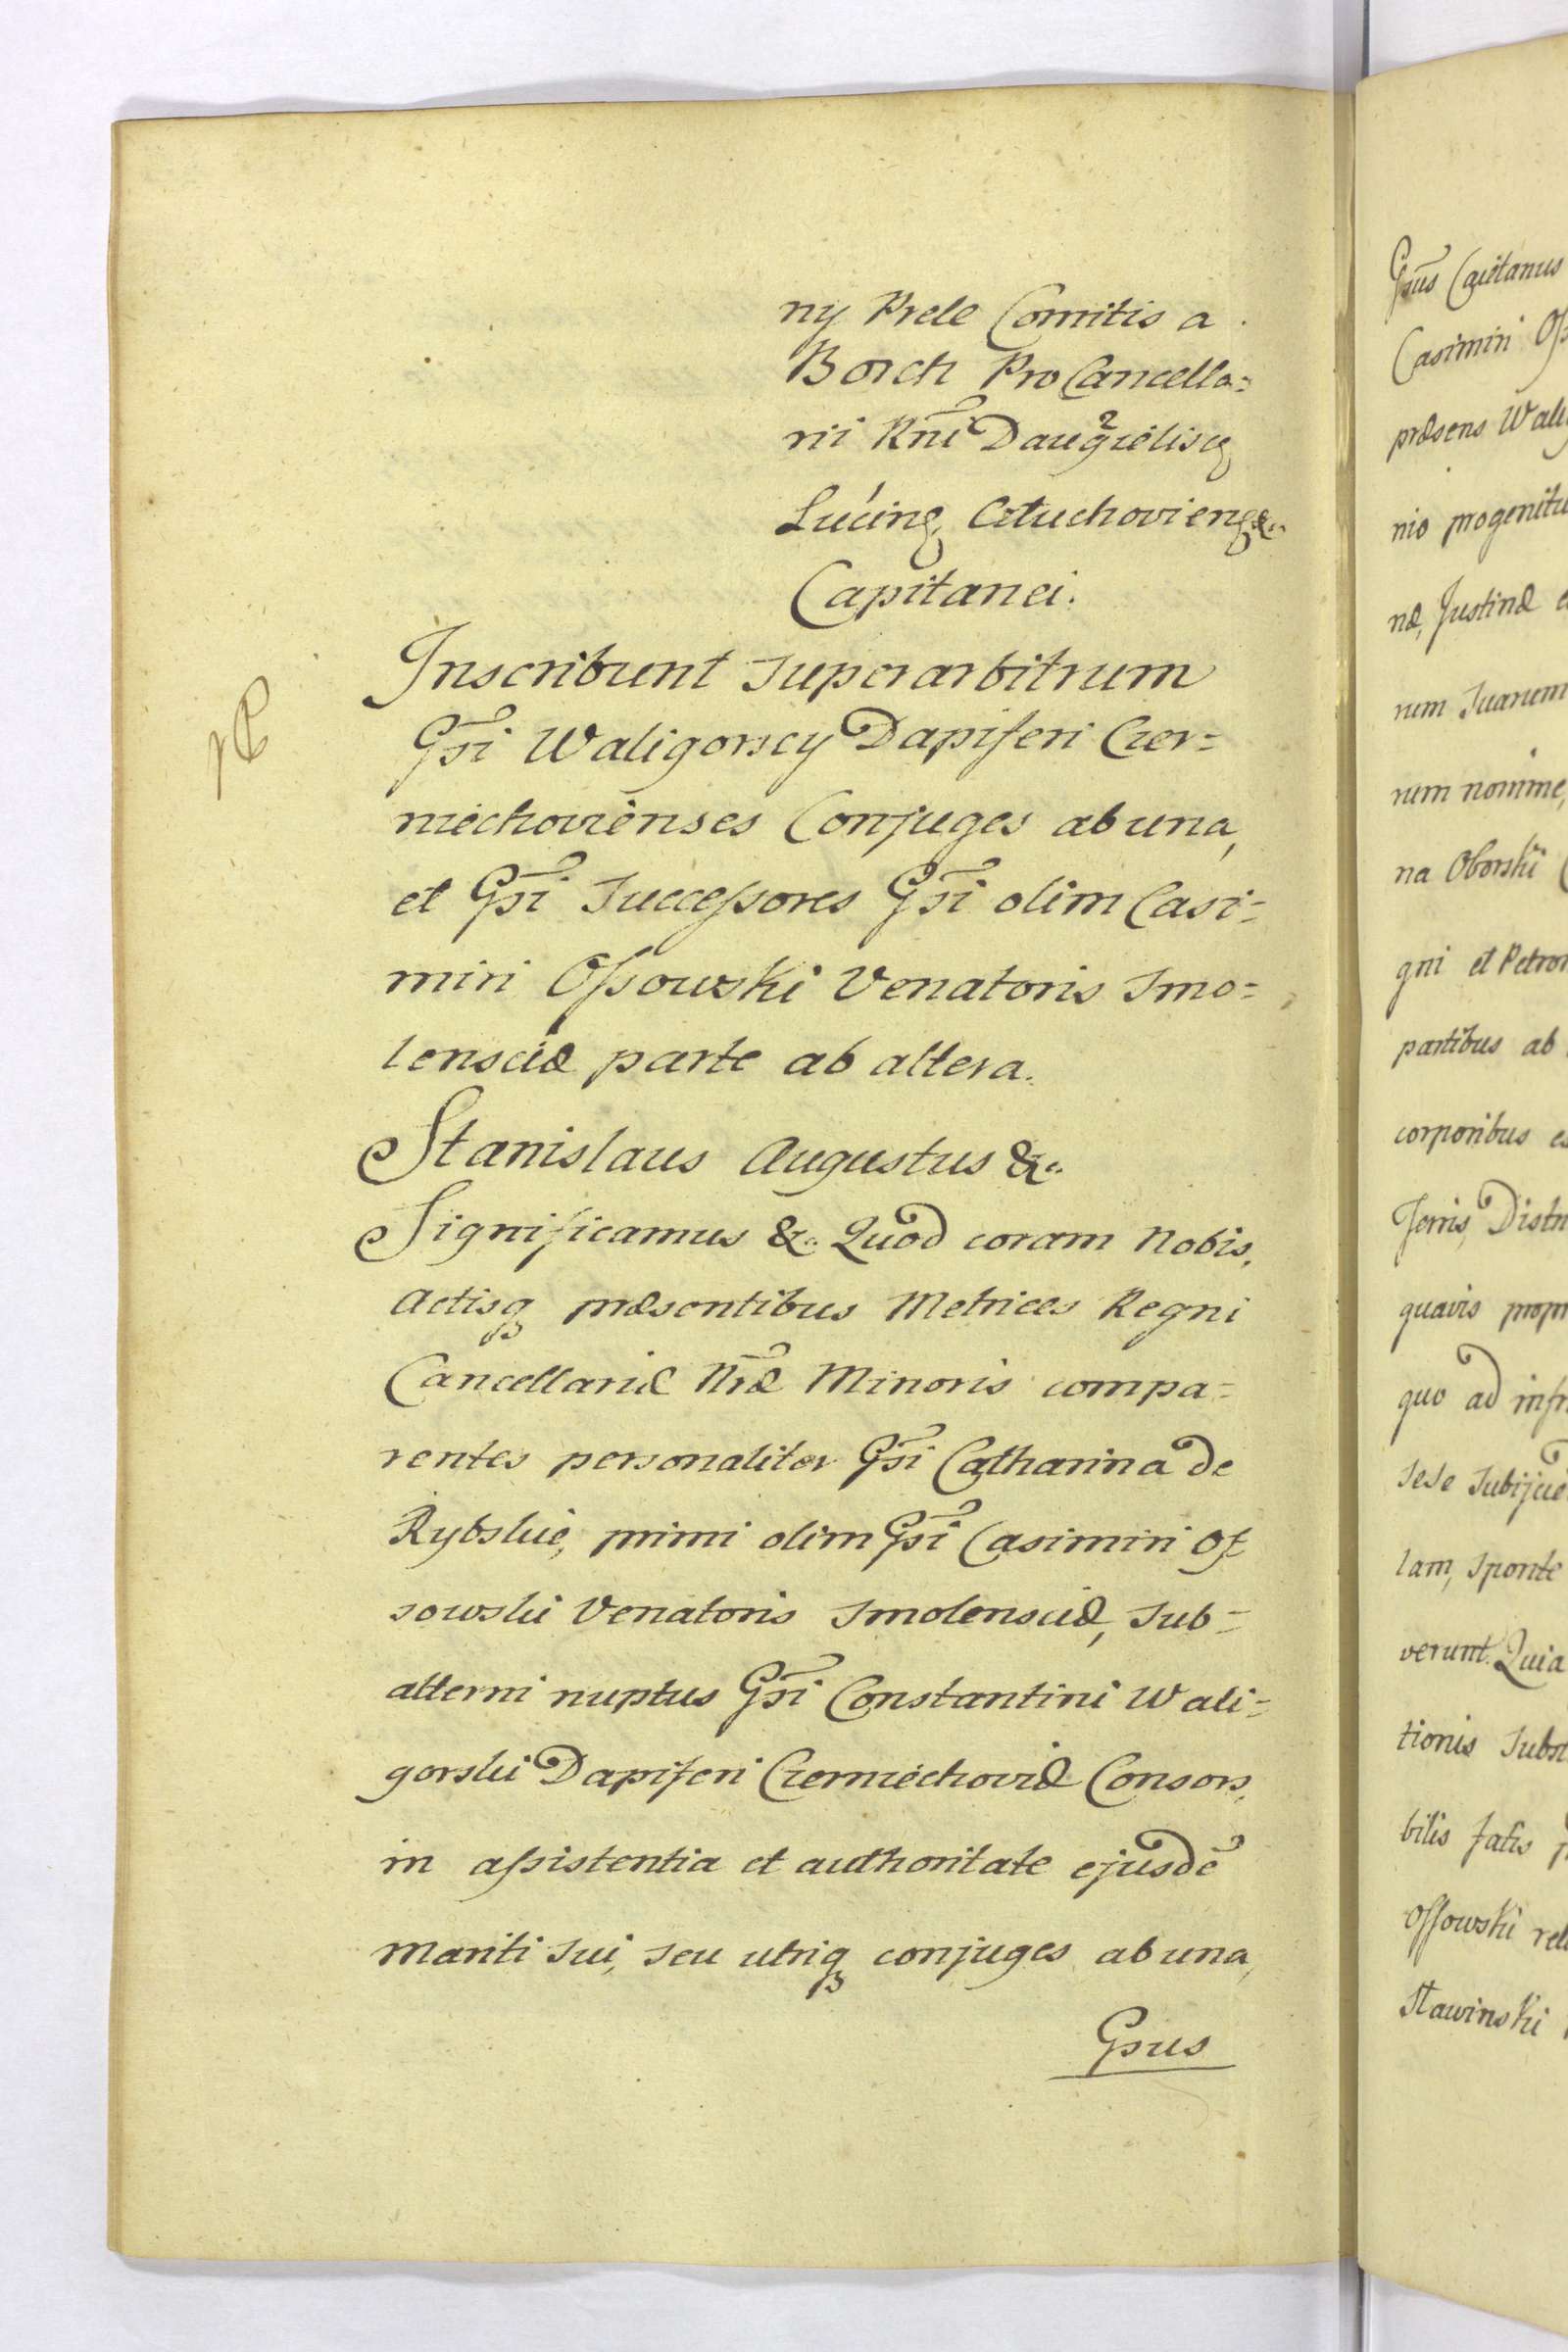 ny Prele Comitis a
Borch ProCancella=
rii Rni Daugielisq
Lucinq, Człuchovienq &.
Capitanei.
Inscribunt Superarbitrum
Gsi Waligorscy Dapiferi Czer=
niechovienses Conjuges ab una,
et Gsi Successores Gsi olim Casi=
miri Ossowski Venatoris Smo=
lensciæ parte ab altera.
Stanislaus Augustus &.
Significamus &. Quod coram Nobis,
Actisq præsentibus Metrices Regni
Cancellariæ Nræ Minoris compa=
rentes personaliter Gsi Catharina de
Rybskie, primi olim Gsi Casimiri Os
sowski Venatoris Smolensciæ, Sub=
alterni nuptus Gsi Constantini Wali=
gorski Dapiferi Czerniechoviæ Consors,
in assistentia et authoritate ejusdē
Mariti Sui, seu utriq conjuges ab una,
Gsus
Gsus Caietanus
Casimiri
præsens
nio
næ, Justinæ
num Suarum
rum nomine,
na Oborski
gni et
partibus ab
corporibus
Terris,
quavis
quo ad
sese
lam, sponte
verunt. Quia
tionis
bilis fatis
Ossowski
Stawinski